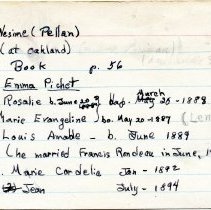 Nesime (Pellan)
(at oakland)
Book p. 56
Emma Pichet
Rosalie b. June 20 bap. March 25 - 1888
Marie Evangeline b. May 20 - 1887
Louis Amable - b. June 1889
(he married Francis Rondeau in June, 1
Marie Cordelia Jan - 1892
Jean July - 1894